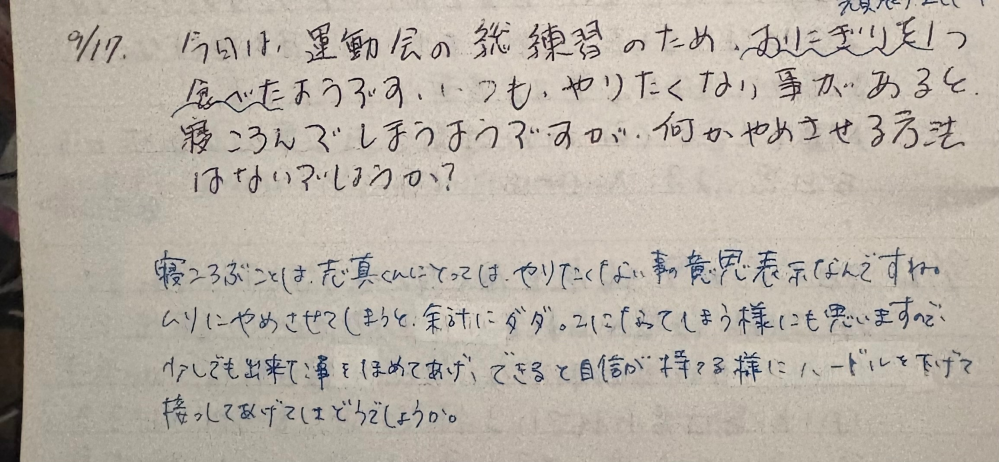 9/17. 今日は、運動会の総練習のため、おりこぎりを1つ
食べたようです、いつも、やりたくない事があると、
寝ころんでしまうようですが、何かやめさせる方法
はないでしょうか?
寝ころぶことは、志真くんにとっては、やりたくない事の意思表示なんですね。
ムリにやめさせてしまうと、余計にダダっこになってしまう様にも思いますので、
少しでも出来た事をほめてあげ、できると自信が持てる様にハードルを下げて
接っしてあげてはどうでしょうか。